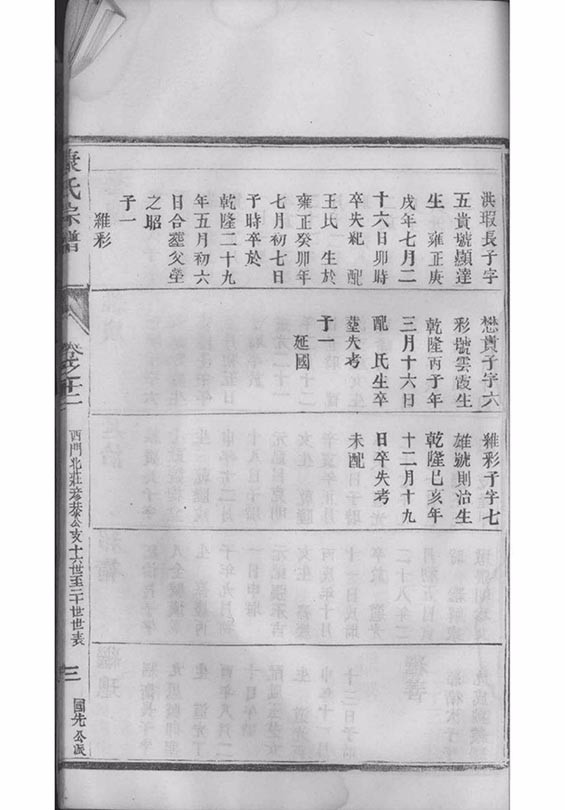 洪瑕長子字
五貴號顯達
生 雍正庚
戌年七月二
十六日卯時
卒失紀 配
王氏 生於
雍正癸卯年
七月初七日
子時卒於
乾隆二十九
年五月初六
日合塟父塋
之昭
子一
雑彩
懋貴子字六
彩號雲霞生
乾隆丙子年
三月十六日
配 氏生卒
塟失考
子一
延國
雑彩子字七
雄號則治生
乾隆己亥年
十二月十九
日卒失考
未配
康氏宗譜
卷之十二
西門北莊彦恭公支十六世至二十世世表
三
國先公派